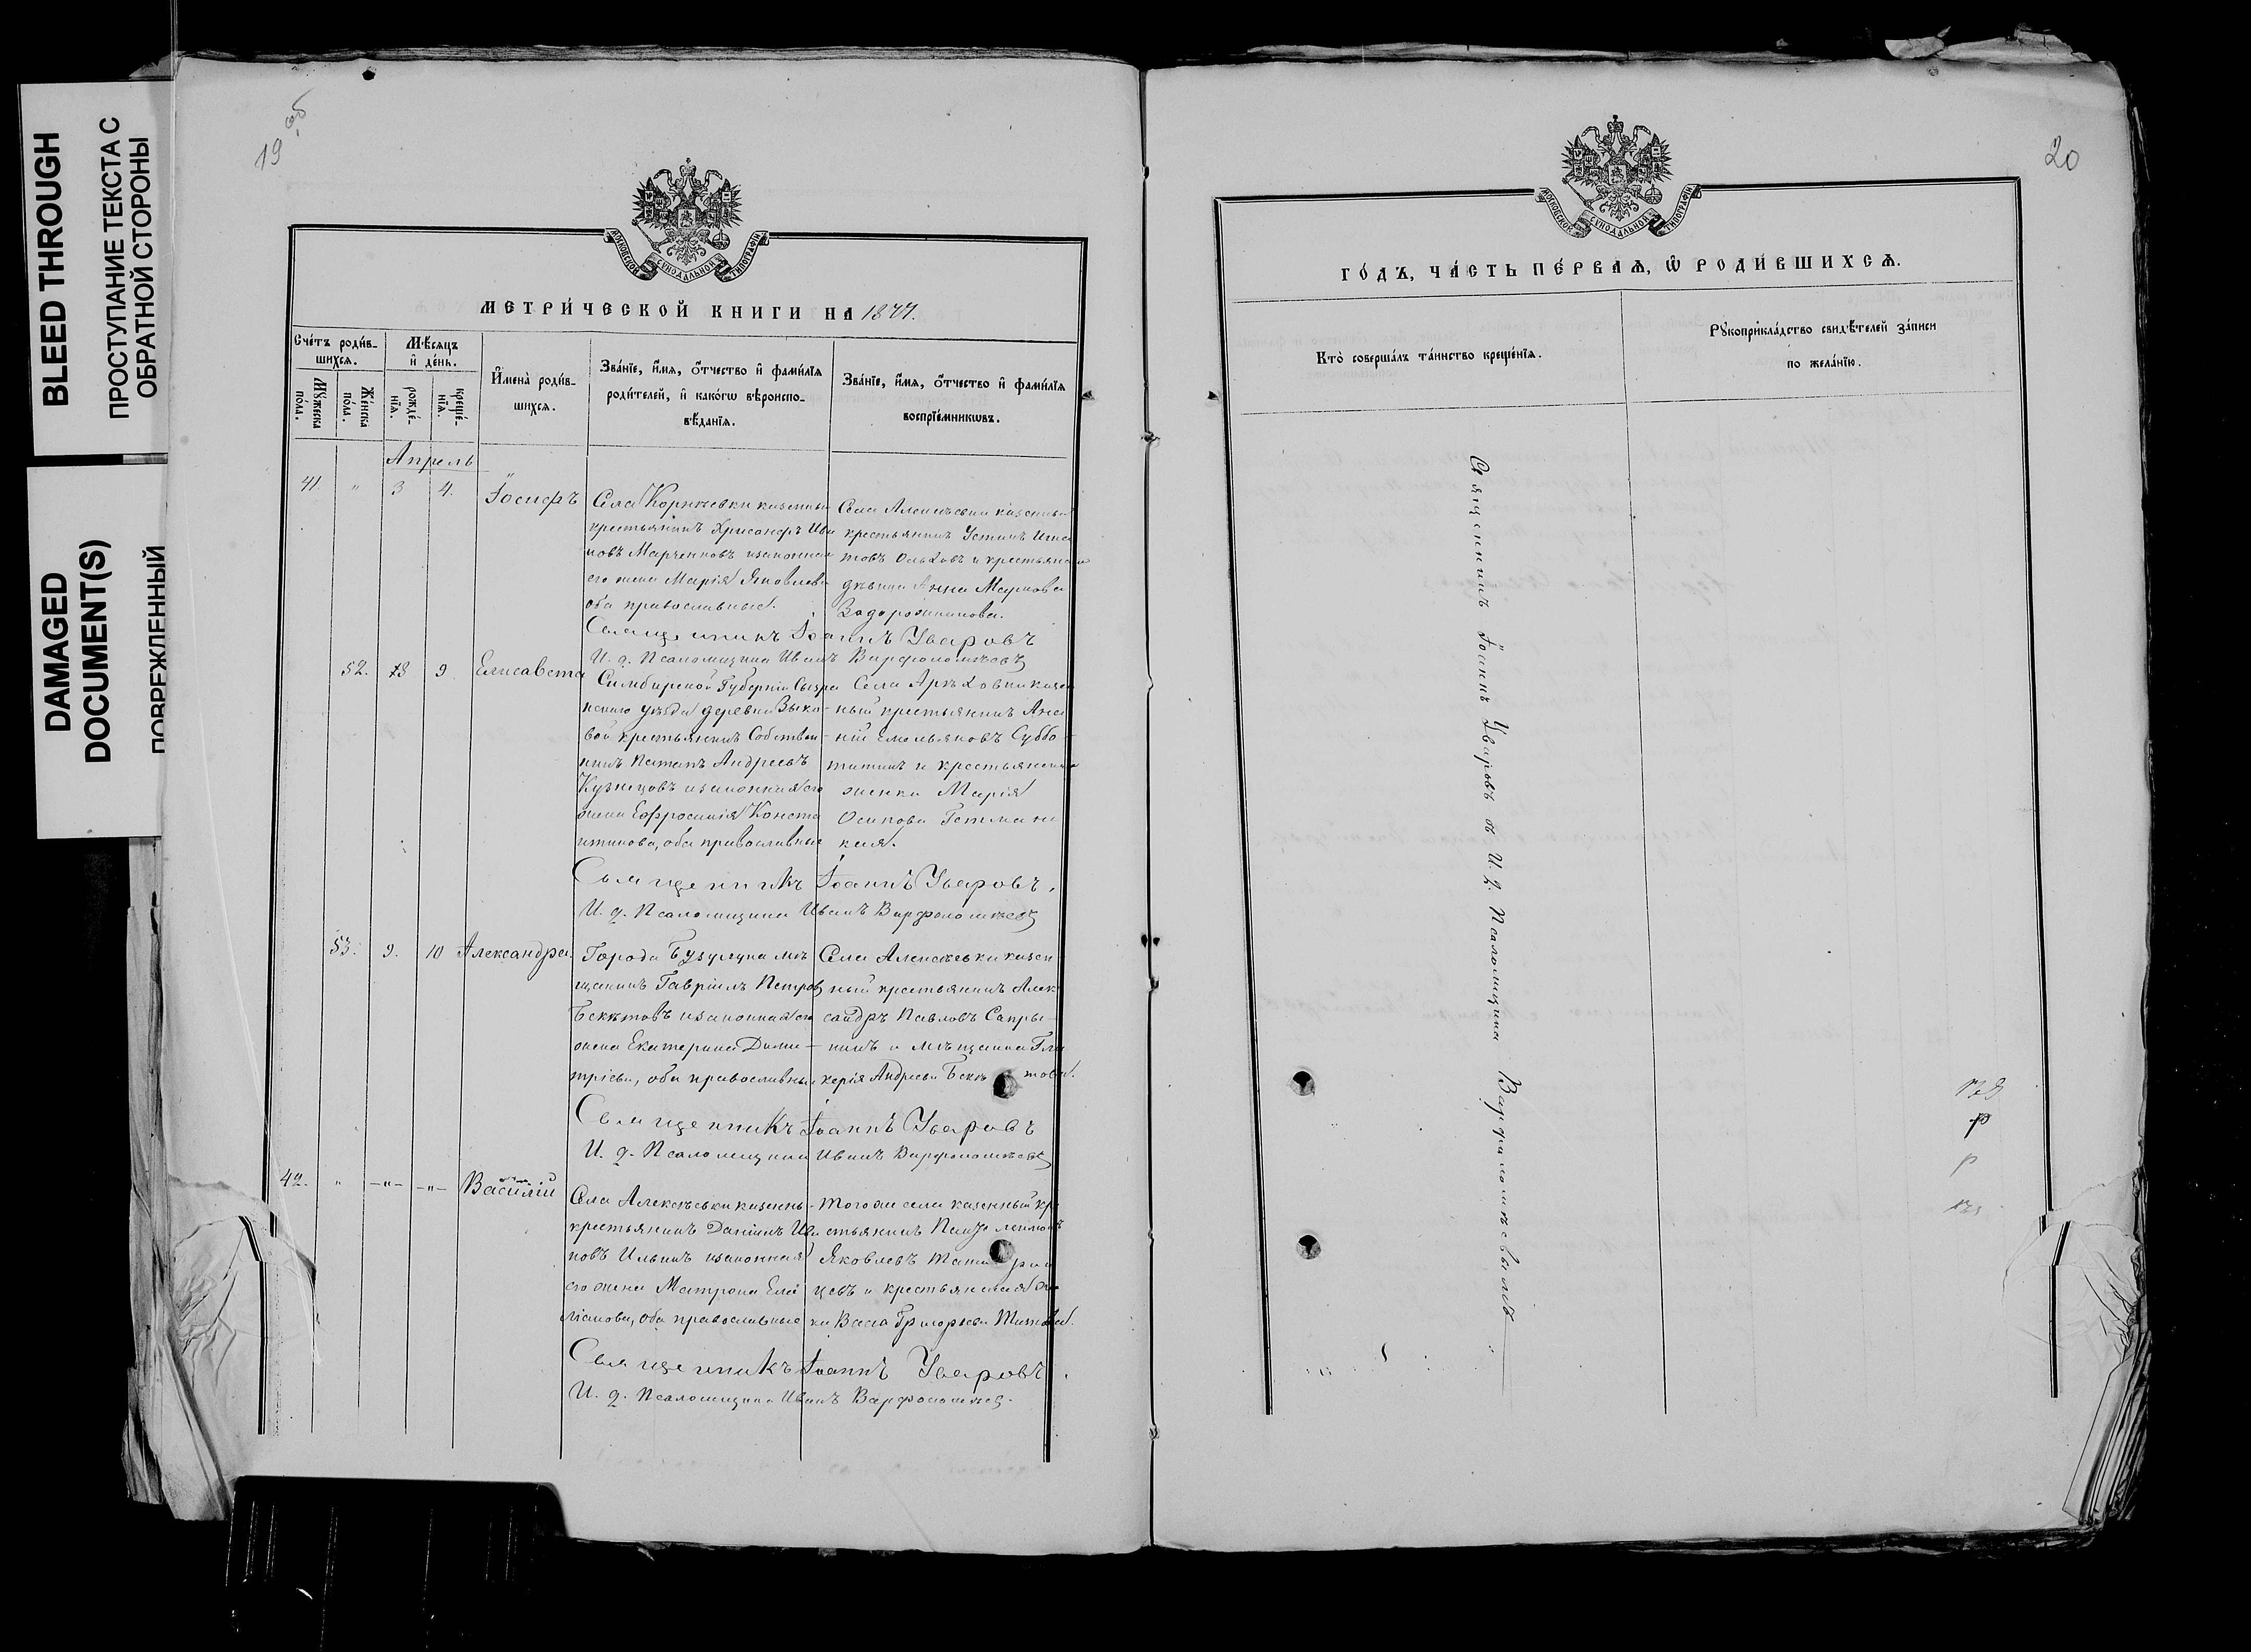 BLEED THROUGH
ПРОСТУПАНИЕ ТЕКСТА С
ОБРАТНОЙ СТОРОНЫ
DAMAGED
DOCUMENT(S)
ПОВРЕЖДЕННЫЙ
19 об
МОСКОВСКОЙ СѴНОДАЛЬНОЙ ТИПОГРАФІИ
МЕТРИ́ЧЕСКОЙ КНИГИ НА 1877.
Сче́тъ роди́в-
шихсѧ.
Мꙋ́жеска
по́ла.
Же́нска
по́ла.
Мѣ́сѧцъ
и҆ де́нь.
рожде́-
нїѧ.
креще́-
нїѧ.
И҆мена̀ роди́в-
шихсѧ.
Зва́нїе, и҆́мѧ, ѻ҆́тчество и҆ фами́лїѧ
роди́телей, и҆ како́гѡ вѣроиспо-
вѣ́данїѧ.
Зва́нїе, и҆́мѧ, ѻ҆́тчество и҆ фами́лїѧ
воспрїе́мникѡвъ.
Апрель
41. " 3 4. Іосифъ
Села казенный
крестьянинъ Хрисанфъ Ива
новъ Марченковъ изаконная
его жена Марія Яковлева
оба православные.
Села Алексѣевки казенный
крестьянинъ Устинъ Игна
товъ и крестьянская
дѣвица Анна Маркова
Задорожникова.
Священникъ Іоаннъ Уваровъ
И. д. Псаломщика Иванъ Варфоломѣевъ
52. 9 Елисавета
Симбирской Губерніи Сызра
нскаго уѣзда деревни Зыко-
вой крестьянинъ Собствен-
никъ Потапъ Андреевъ
Кузнецовъ изаконная его
жена Евфросинія Конста
нтинова, оба православные
Села казен
ный крестьянинъ
Емельяновъ Суббо-
тинъ и крестьянская
женка Марія
Осипова Гетман
ская.
Священникъ Іоаннъ Уваровъ.
И. д. Псаломщика Иванъ Варфоломѣевъ
53. 9. 10 Александра.
Города Бузулука мѣ
щанинъ Гавріилъ Петровъ
Бекѣтовъ изаконная его
жена Екатерина Дими-
тріева, оба православные
Села Алексѣевки казен
ный крестьянинъ Алек
сандръ Павловъ Сапры-
кинъ и мѣщанка Гли
керія Андреева Бекѣтова.
Священникъ Іоаннъ Уваровъ
И. д. Псаломщика Иванъ Варфоломѣевъ
42. " -"- -"- Василій
Села Алексѣевки казенны-
крестьянинъ Даніилъ Ива
новъ Ильинъ изаконная
его жена Матрона Емѣ
ліанова, оба православные
Того же села казенный кр
стьянинъ
Яковлевъ
цевъ и крестьянская жен
ка Васса Григорьева Титова.
Священникъ Іоаннъ Уваровъ.
И. д. Псаломщика Иванъ Варфоломѣев.
20
МОСКОВСКОЙ СѴНОДАЛЬНОЙ ТИПОГРАФІИ
ГО́ДЪ, ЧА́СТЬ ПЕ́РВАѦ, Ѡ҆ РОДИ́ВШИХСѦ.
Кто̀ соверша́лъ та́инство креще́нїѧ.
Рꙋкоприкла́дство свидѣ́телей за́писи
по жела́нїю.
Священникъ Іоаннъ Уваровъ съ И. д. Псаломщика Варфоломѣевымъ